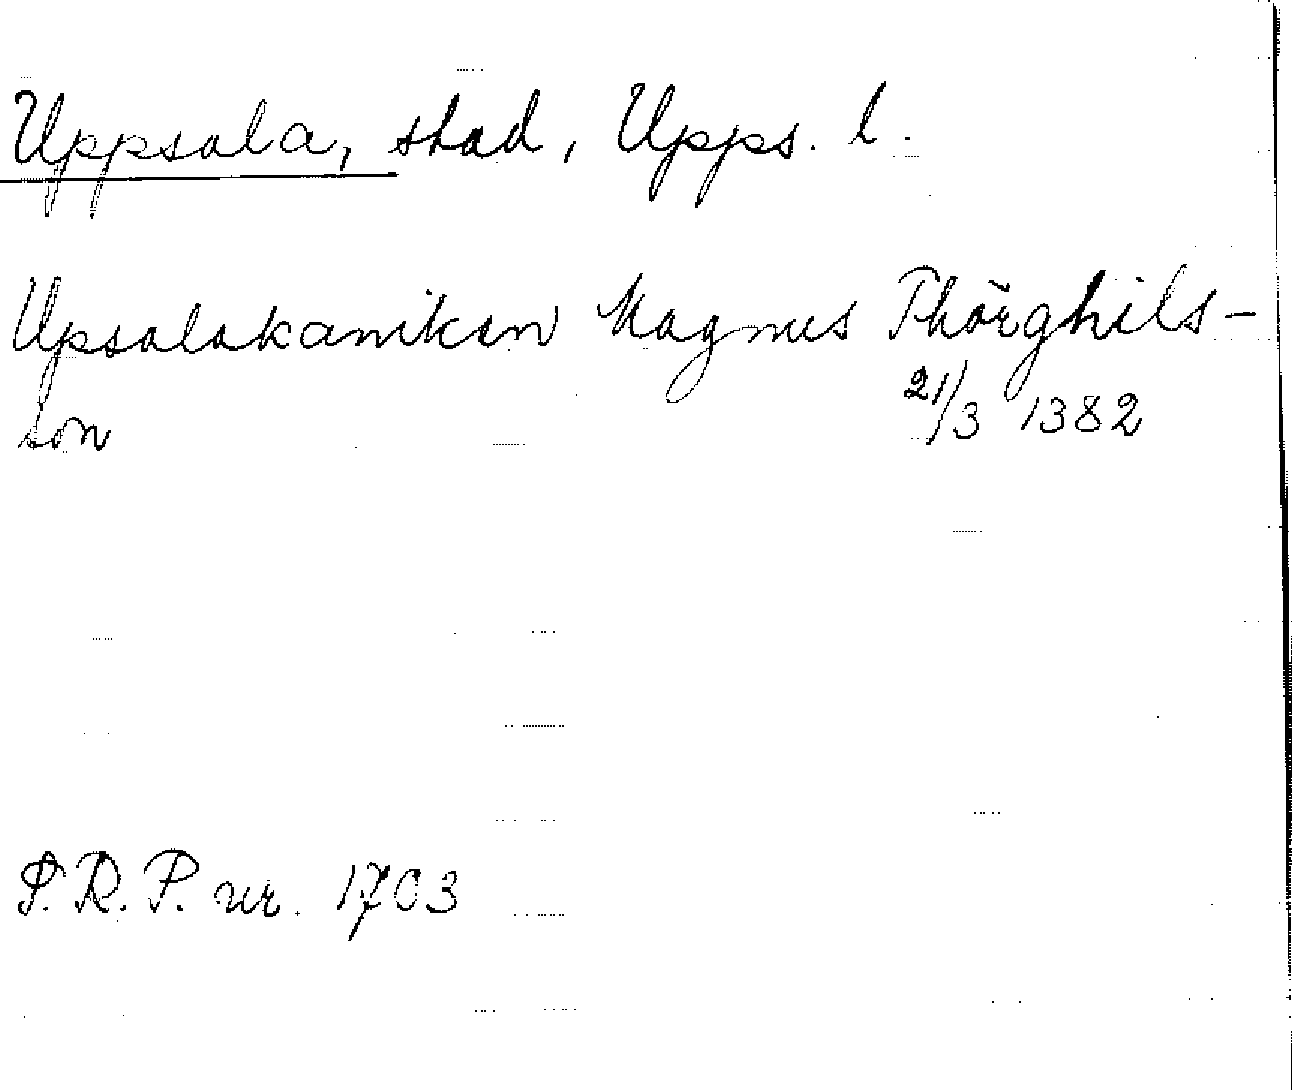 Uppsala, stad, Upps. l.
Upsalakaniken Magnus Thörghils-
son 21/3 1382
S.R.P. nr. 1703